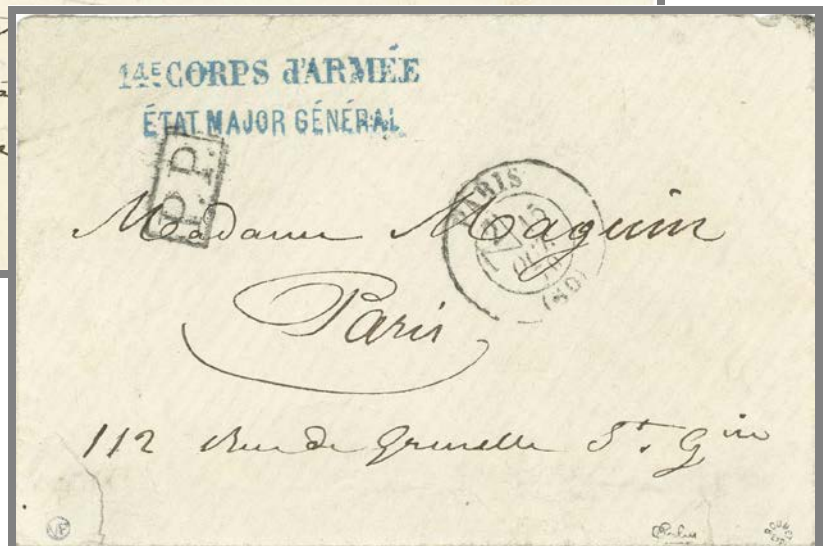 14E CORPS d'ARMÉE
ÉTAT MAJOR GÉNÉRAL
P.P.
PARIS
15
OCT.
(60)
Madame Maguin
Paris
112 Rue de Grenelle St. Gin